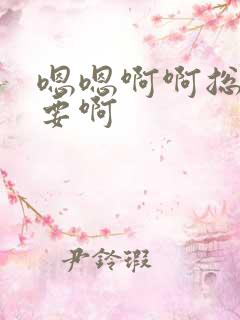 嗯嗯啊啊总
要啊
尹铃瑕